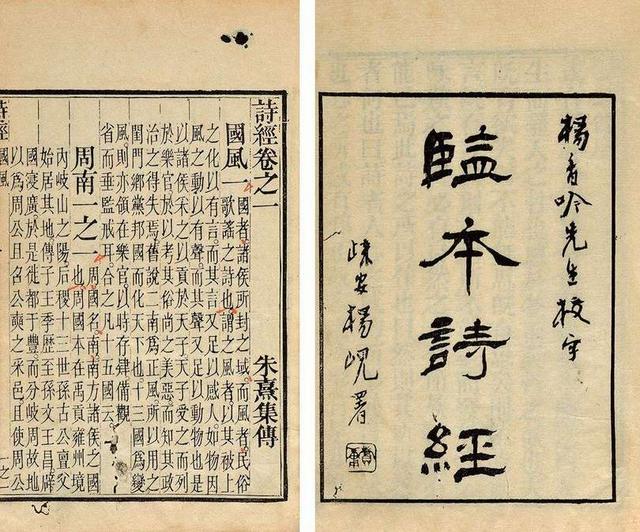 楊香吟先生校字
監本詩經
歸安楊峴署
詩經卷之一
朱熹集傳
國風一 國者諸侯所封之域而風者民俗
歌謠之詩也謂之風者以其被上
之化以有言而其言又足以感人如物因
風之動以有聲而其聲又足以動物也是
以諸侯采之以貢於天子天子受之而列
於樂官於以考其俗尚之美惡而知其政
治之得失焉舊說二南為正風所以用之
閨門鄉黨邦國而化天下也十三國為變
風則亦領在樂官以時存肄備觀
省而垂監戒耳合之凡十五國云
周南一之一 周國名南南方諸侯之國
也周國本在禹貢雍州境
內岐山之陽后稷十三世孫古公亶父
始居其地傳子王季歷至孫文王昌辟
國寖廣於是徙都于豐而分岐周故地
以為周公旦召公奭之采邑且使周公
詩經
國風